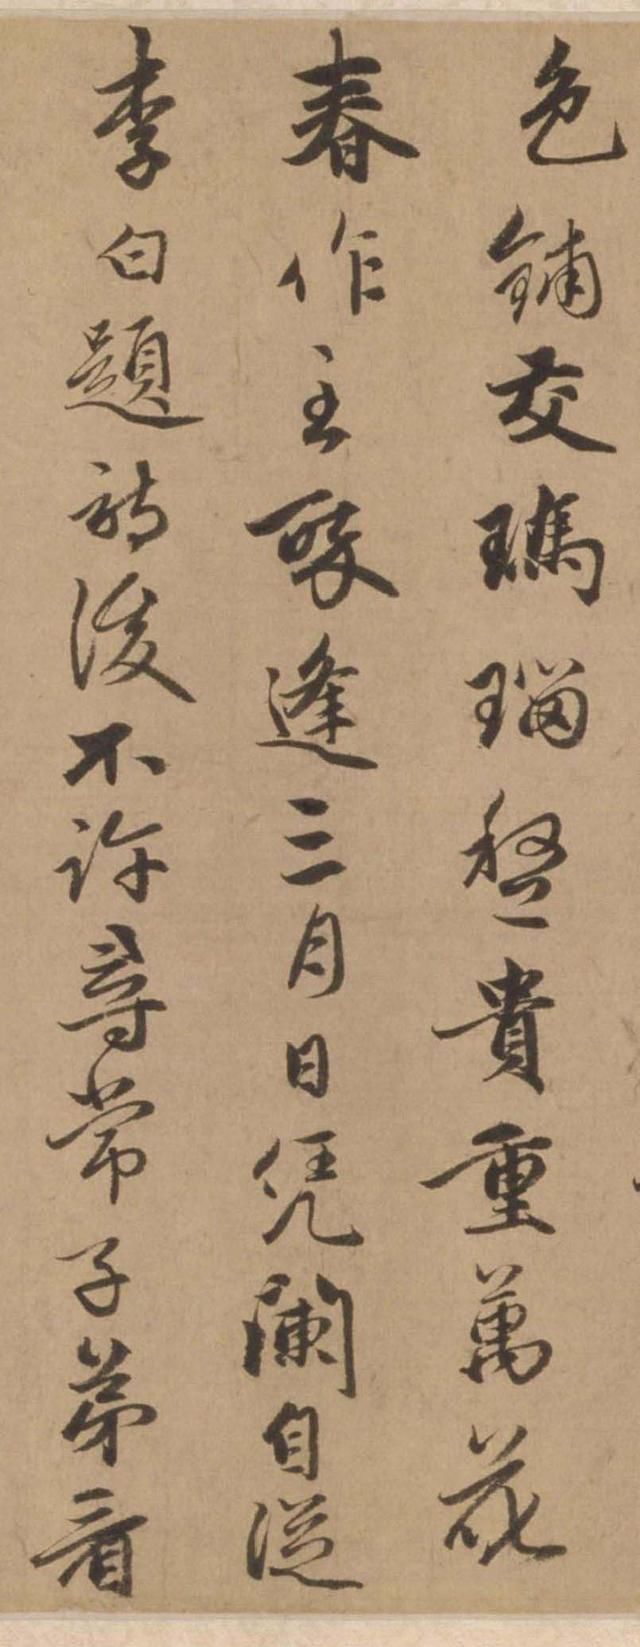 色鋪交瑪瑙盤貴重萬花
春作主聚逢三月日凭闌自從
李白題詩後不許尋常子弟看